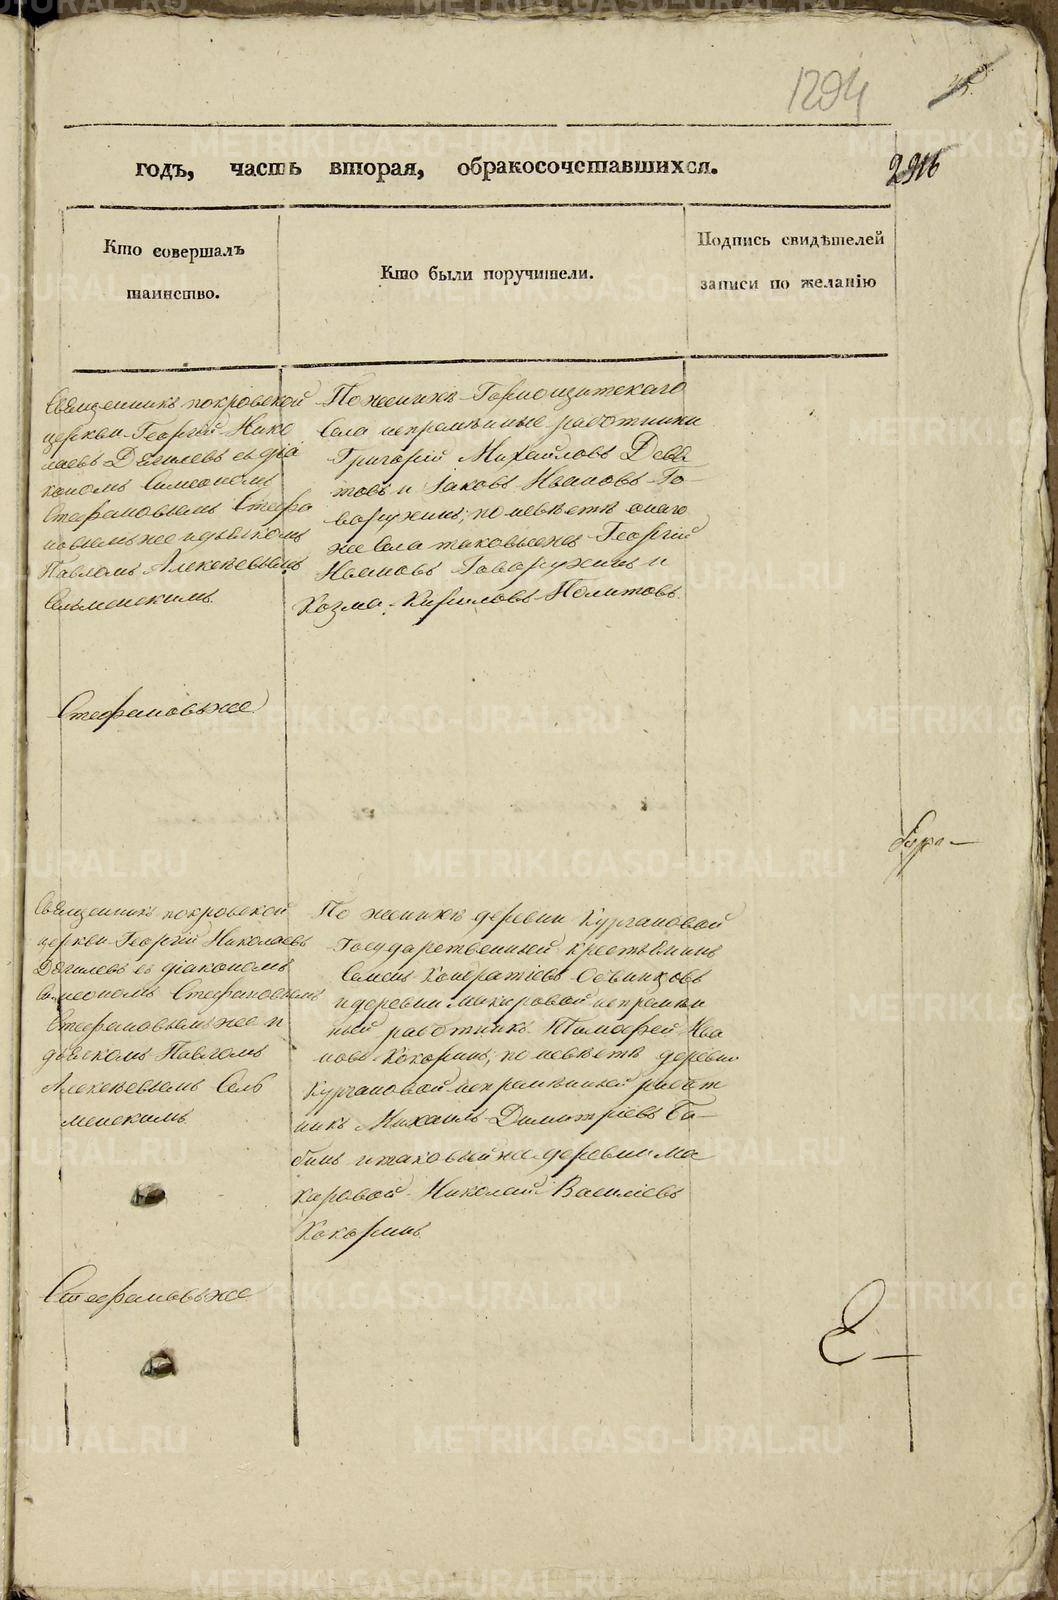 1294
годъ, часть вторая, обракосочетавшихся.
Кто совершалъ
таинство.
Кто были поручители.
Подпись свидѣтелей
записи по желанію
Священникъ покровской
церкви Георгій Нико
лаевъ Дягилевъ съ діа
кономъ Симеономъ
Стефановымъ Стефа
новымъ же и дьячкомъ
Павломъ Алексѣевымъ
Сельменскимъ.
По женихѣ Горнощитскаго
села непремѣнные работники
Григорій Михайловъ
и Іаковъ Ивановъ Го
воружинъ; по невѣстѣ онаго
же села таковые же Георгій
Ивановъ Говоружинъ и
Козма Кириловъ Политовъ.
Стефановъ же
Священникъ покровской
церкви Георгій Николаевъ
Дягилевъ съ діакономъ
Симеономъ Стефановымъ
Стефановымъ же и
дьячкомъ Павломъ
Алексѣевымъ Сель
менскимъ.
По женихѣ деревни Кургановой
Государственный крестьянинъ
Семенъ Кондратіевъ Овчинковъ
и деревни Макаровой непремѣн
ный работникъ Тимофей Ива
новъ Кокоринъ; по невѣстѣ деревни
Кургановой непремѣнный работ
никъ Михаилъ Димитріевъ Ба
бинъ и таковый же деревни Ма
каровой Николай Василіевъ
Кокоринъ.
Стефановъ же
METRIKI.GASO-URAL.RU